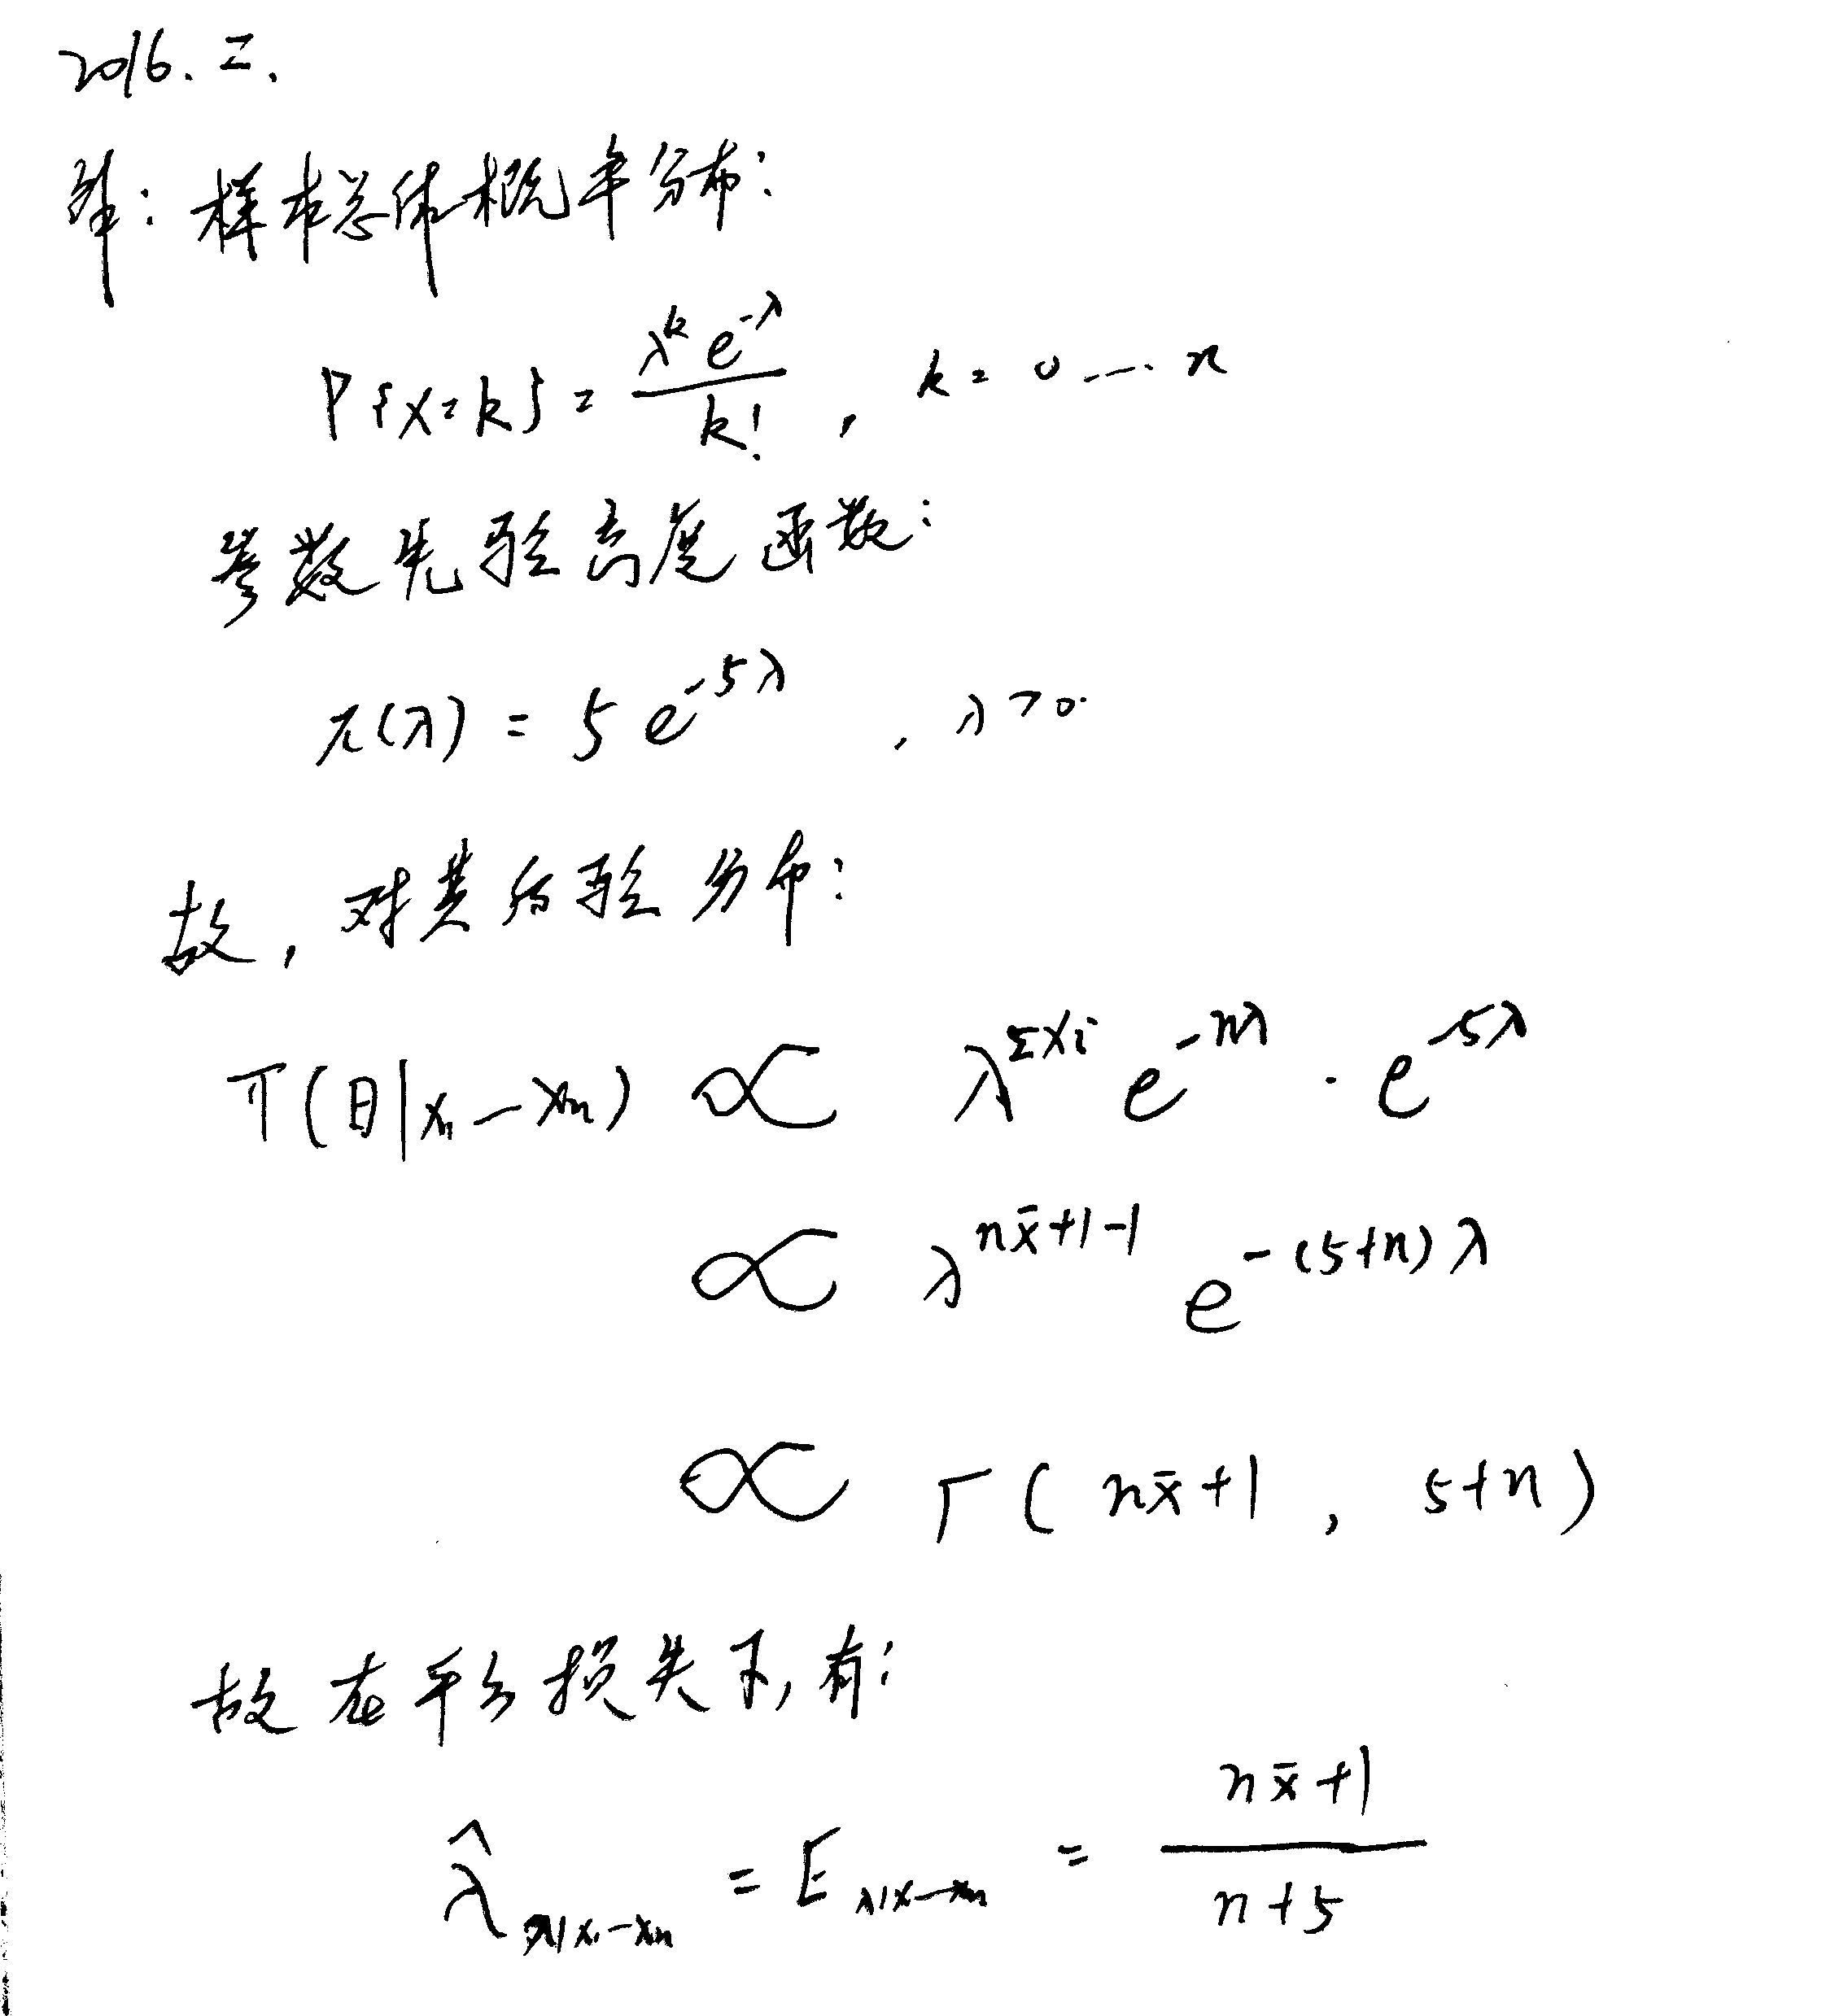 2016. 二.
解: 样本总体概率分布:
P{X=k} = λ^k e^{-λ} / k! , k = 0 ... n
参数先验密度函数:
π(λ) = 5 e^{-5λ} , λ>0.
故, 对其后验分布:
π(θ|x₁—xₙ) ∝ λ^{Σxᵢ} e^{-nλ} · e^{-5λ}
∝ λ^{nx̄+1-1} e^{-(5+n)λ}
∝ Γ( nx̄+1 , 5+n)
故在平方损失下, 有:
λ̂_{λ|x₁—xₙ} = E_{λ|x—xₙ} = (nx̄+1) / (n+5)